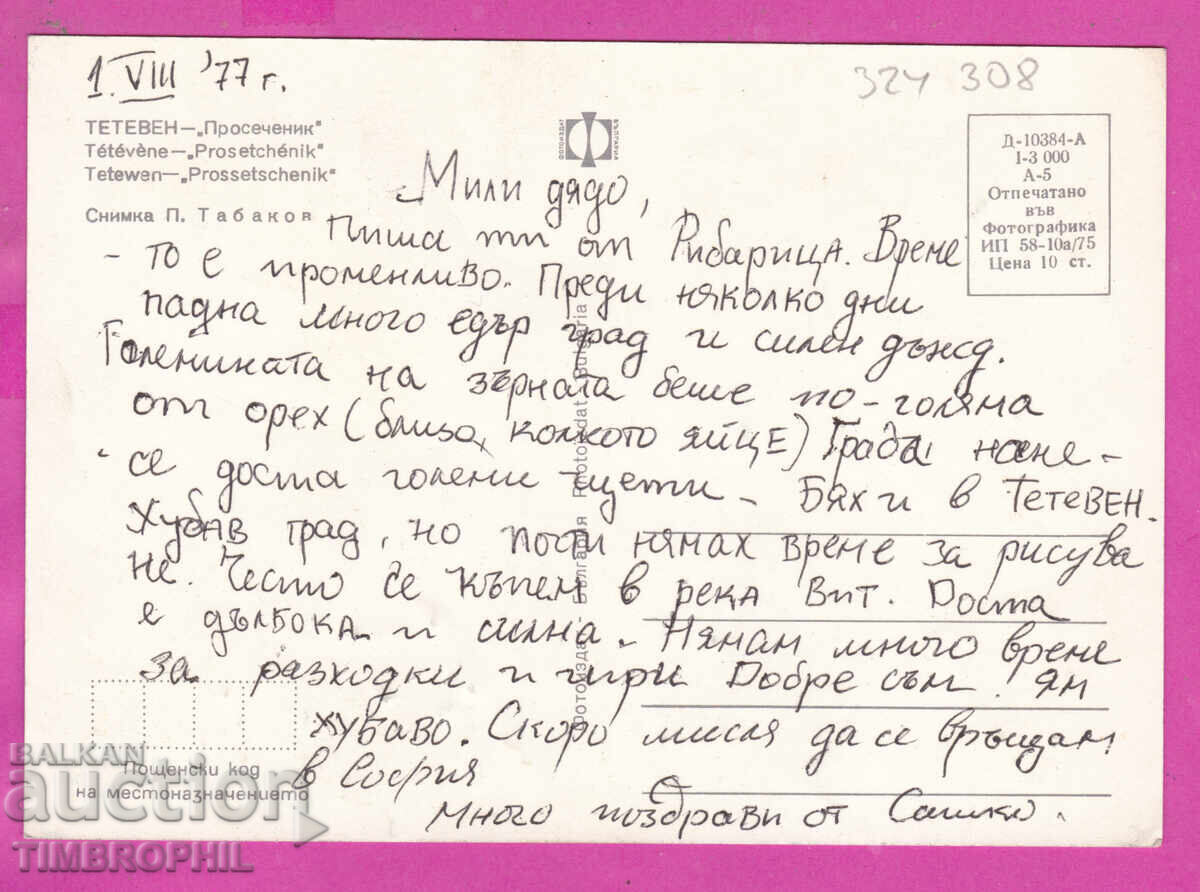 1. VIII '77 г.
324 308
ТЕТЕВЕН—„Просеченик"
Tétévène—„Prosetchénik"
Tetewen—„Prossetschenik"
Снимка П. Табаков
ФОТОИЗДАТ БЪЛГАРИЯ
Д-10384-А
I-3 000
А-5
Отпечатано
във
Фотографика
ИП 58-10а/75
Цена 10 ст.
Мили дядо,
Пиша ти от Рибарица. Време
- то е променливо. Преди няколко дни
падна много едър град и силен дъжд.
Големината на зърната беше по-голяма
от орех (близо колкото яйце) Града нане-
се доста големи щети. Бях и в Тетевен.
Хубав град, но почти нямах време за рисува
не. Често се къпем в река Вит. Доста
е дълбока и силна. Нямам много време
за разходки и игри Добре съм. Ям
хубаво. Скоро мисля да се връщам
в София
Много поздрави от Сашко.
Фотоиздат България Fotoizdat Bulgaria
Пощенски код
на местоназначението
BALKAN
auction
TIMBROPHIL